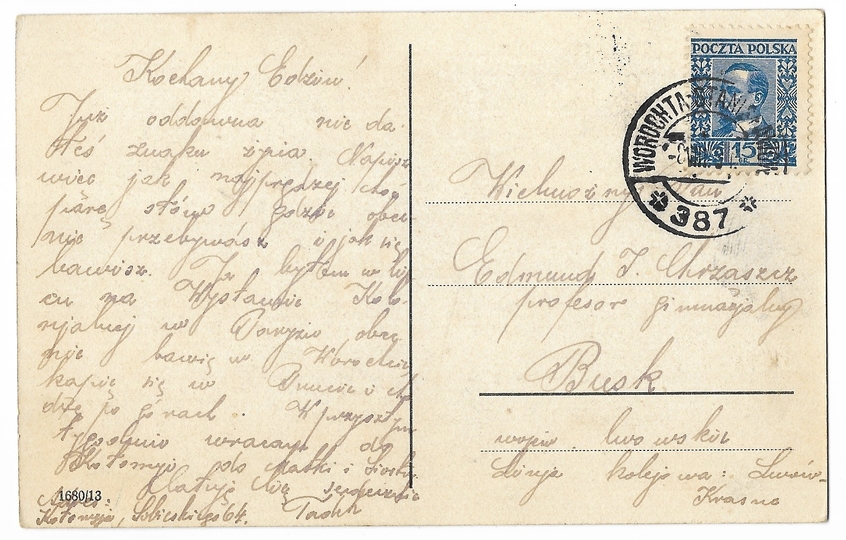 Kochany Edziu!
Już oddawna nie da-
łeś znaku życia. Napisz
więc jak najprędzej choć
parę słów gdzie obec-
nie przebywasz i jak się
bawisz. Ja byłem w lip-
cu na Wystawie Kolo-
njalnej w Paryżu obec-
nie bawię w Worochcie
kąpię się w Prucie i cho-
dzę po górach. W przyszłym
tygodniu wracam do
Kołomyi do Matki i Siostry
Całuję Cię serdecznie
1680/13
Adres:
Kołomyja, Sobieskiego 64.
POCZTA POLSKA
15
WOROCHTA
387
Wielmożny Pan
Edmund J. Chrzaszcz
profesor gimnazjalny
Busk
wojew. lwowskie
Linja kolejowa: Lwów-
Krasne